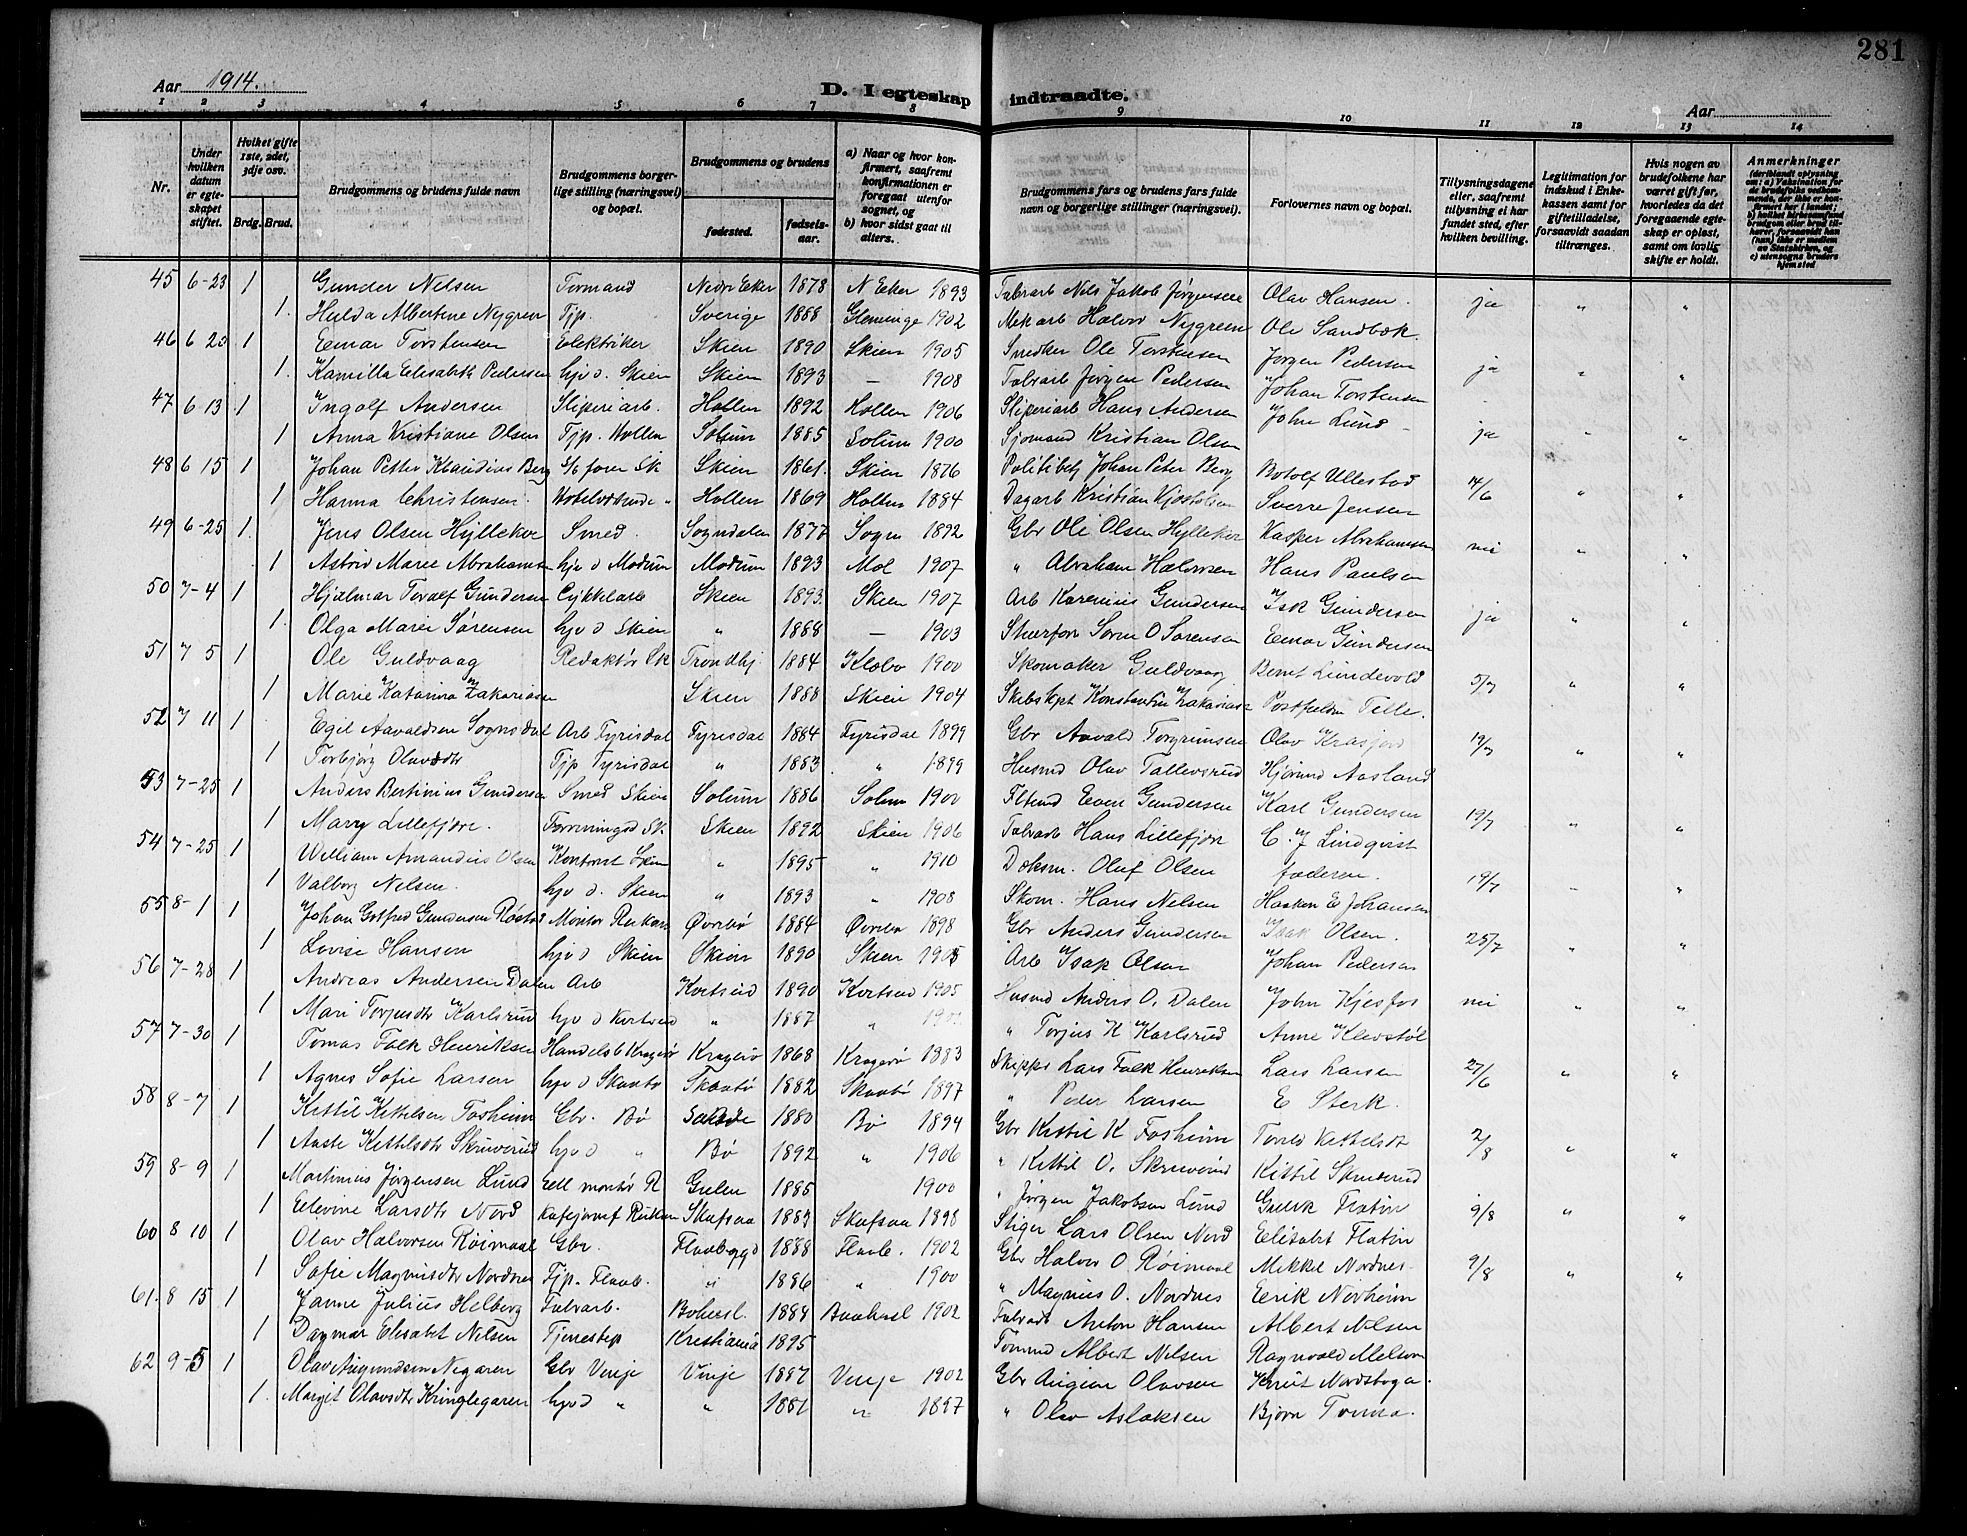 281
Aar 1914.
D. I egteskap indtraadte.
Aar
1 2 3 4 5 6 7 8 9 10 11 12 13 14
Nr.
Under hvilken datum er egteskapet stiftet.
Hvilket gifte 1ste, 2det, 3dje osv.
Brdg. Brud.
Brudgommens og brudens fulde navn
Brudgommens borgerlige stilling (næringsvei) og bopæl.
Brudgommens og brudens
fødested. fødselsaar.
a) Naar og hvor konfirmert, saafremt konfirmationen er foregaat utenfor sognet, og
b) hvor sidst gaat til alters.
Brudgommens fars og brudens fars fulde navn og borgerlige stillinger (næringsvei).
Forlovernes navn og bopæl.
Tillysningsdagene eller, saafremt tillysning ei har fundet sted, efter hvilken bevilling.
Legitimation for indskud i Enkekassen samt for giftetilladelse, forsaavidt saadan tiltrænges.
Hvis nogen av brudefolkene har været gift før, hvorledes da det foregaaende egteskap er opløst, samt om lovlig skifte er holdt.
Anmerkninger (deriblandt oplysning om: a) Vaksination for de brudefolks vedkommende, der ikke er konfirmert her i landet; b) hvilket kirkesamfund brudgom eller brud tilhører, forsaavidt han (hun) ikke er medlem av Statskirken, og c) utensogns bruders hjemsted
45 6-23 1 Gunder Nelsen Formand Nedre Eker 1878 N Eker 1893 Fabrarb Nils Jakob Jørgensen Olav Hansen. ja " "
1. Hulda Albertine Nygren Tjp. Sverige 1888 Glemmge 1902 Mekarb Halvor Nygreen Ole Sandbæk.
46 6 20 1 Einar Torstensen Elektriker Skien 1890 Skien 1905 Snedker Ole Torstensen Jørgen Pedersen ja " "
1. Kamilla Elisabeth Pedersen hjv d. Skien Skien 1893 — 1908 Fabrarb Jørgen Pedersen Johan Torstensen
47 6 13 1 Ingolf Andersen Sliperiarb. Hollen 1892 Hollen 1906 Sliperiarb Hans Andersen John Lund ja " "
1 Anna Kristiane Olsen Tjp. Hollen Solum 1885 Solum 1900 Sjømand Kristian Olsen
48 6 15 1 Johan Petter Klaudius Berg Skien 1861. Skien 1876 Politibtj Johan Peter Berg Botolf Ullestad 14/6 " "
1 Hanna Christensen. Hollen 1869 Hollen 1884 Dagarb Kristian Sverre Jensen
49 6-25 1. Jens Olsen Hylleker Smed. Sogndalen 1877 Sogn 1892 Gbr Ole Olsen Hylleker Kasper Abrahamsen nei " "
1 Astrid Marie Abrahamsen hjv d Modum Modum 1893 Mod 1907 " Abraham Halvorsen Hans Paulsen
50 7-4 1 Hjalmar Toralf Gundersen Cykkelarb Skien 1893. Skien 1907 Arb Karenius Gundersen Isk Gundersen ja " "
1. Olga Marie Sørensen hjv d Skien " 1888 — 1903 Sørn O Sørensen Einar Gundersen
51 7 5 1 Ole Guldvaag Redaktør Sk Trondhj 1884 Klæbo 1900 Skomaker Guldvaag Bernt Lundevold 5/7 " "
1 Marie Katarina Zakariasen Skien 1888 Skien 1904 Skibskpt Konstantin Zakarias Tille.
52 7 11 1 Egil Aavaldsen Sognsdal Arb Fyrisdal Fyrisdal 1884 Fyrisdal 1899 Gbr Aavald Torgrimsen Olav 12/7 " "
1 Torbjørg Olavsdtr Tjp Fyrisdal " 1883 " 1899 Husmd Olav Tallevsrud Aasland
53 7-25 1 Anders Bertinius Gundersen Smed Skien Solum 1886 Solum 1900 Even Gundersen Karl Gundersen 19/7 " "
1 Mary Lillefjære. Skien 1892 Skien 1906 Fabrarb Hans Lillefjære C. J Lindqvist
54 7-25 1 William Amandus Olsen Kontorist Skien " 1895 " 1910 Oluf Olsen faderen. 19/7 " "
1 Valborg Nelsen. hjv d. Skien " 1893 " 1908 Skom. Hans Nelsen Haaken E Johansen
55 8-1 1 Johan Gotfred Gundersen Montør Rukan Øvrebø 1884 Øvrebø 1898 Gbr Anders Gundersen Isak Olsen. 25/7 " "
1 Lovise Hansen hjv d Skien Skien 1890 Skien 1905 Arb Isak Olsen Johan Pedersen
56 7-28 1 Andreas Andersen Dalen Arb Kvitseid 1890 Kvitseid 1905 Husmd Anders O. Dalen John Kjesfos nei " "
1 Mari Torjusdtr Karlsrud hjv d Kvitseid " 1887 " " Torjus K Karlsrud Anne Klevstøl
57 7-30 1 Tomas Falk Henriksen Handelsb Kragerø Kragerø 1868 Kragerø 1883 Skippr Lars Falk Henriksen Lars Larsen 27/6 " "
1 Agnes Sofie Larsen hjv d Skaatø Skaatø 1882 Skaatø 1897 " Peder Larsen E Sterk.
58 8-7 1 Kittil Kittelsen Fosheim Gbr. Bø 1880 Bø 1894 Gbr Kittil K Fosheim 2/8 " "
1 Aaste Kittilsdtr Skruverud hjv d " Bø 1892 " 1906 " Kittil O. Skruverud Kittil Skruverud
59 8-9 1 Martinius Jørgensen Lund Eell montør R Gulen 1885 1900 " Jørgen Jakobsen Lund Flatin 9/8 " "
1 Eelevine Larsdtr Nord Skafsaa 1883 Skafsaa 1898 Stiger Lars Olsen Nord Elisabet Flatin
60 8 10 1 Olav Halvorsen Røimaal Gbr. Flaabygd 1888 Flaab. 1902 Gbr Halvor O. Røimaal Mikkel Nordnes 9/8 " "
1 Sofie Magnusdtr Nordnes Tjp. Flaab. " 1886 " 1900 " Magnus O. Nordnes Eerik Norheim
61. 8 15 1 Janne Julius Helberg Fabrarb. Bohusl. 1884 Baahusl 1902 Fabrarb Anton Hansen Albert Nilsen
1 Dagmar Elisabet Nilsen Tjenestep Kristiania 1895 Tommd Albert Nilsen Ragnvald Melsom
62 9-5 1 Olav Augundsen Negaren Gbr Vinje Vinje 1887 Vinje 1902 Gbr Augun Olavsen Knut Nordbøga.
1. Margit Olavsdtr Kringlegaren hjv d " " 1881 " 1897 " Olav Aslaksen Bjørn Tonna.